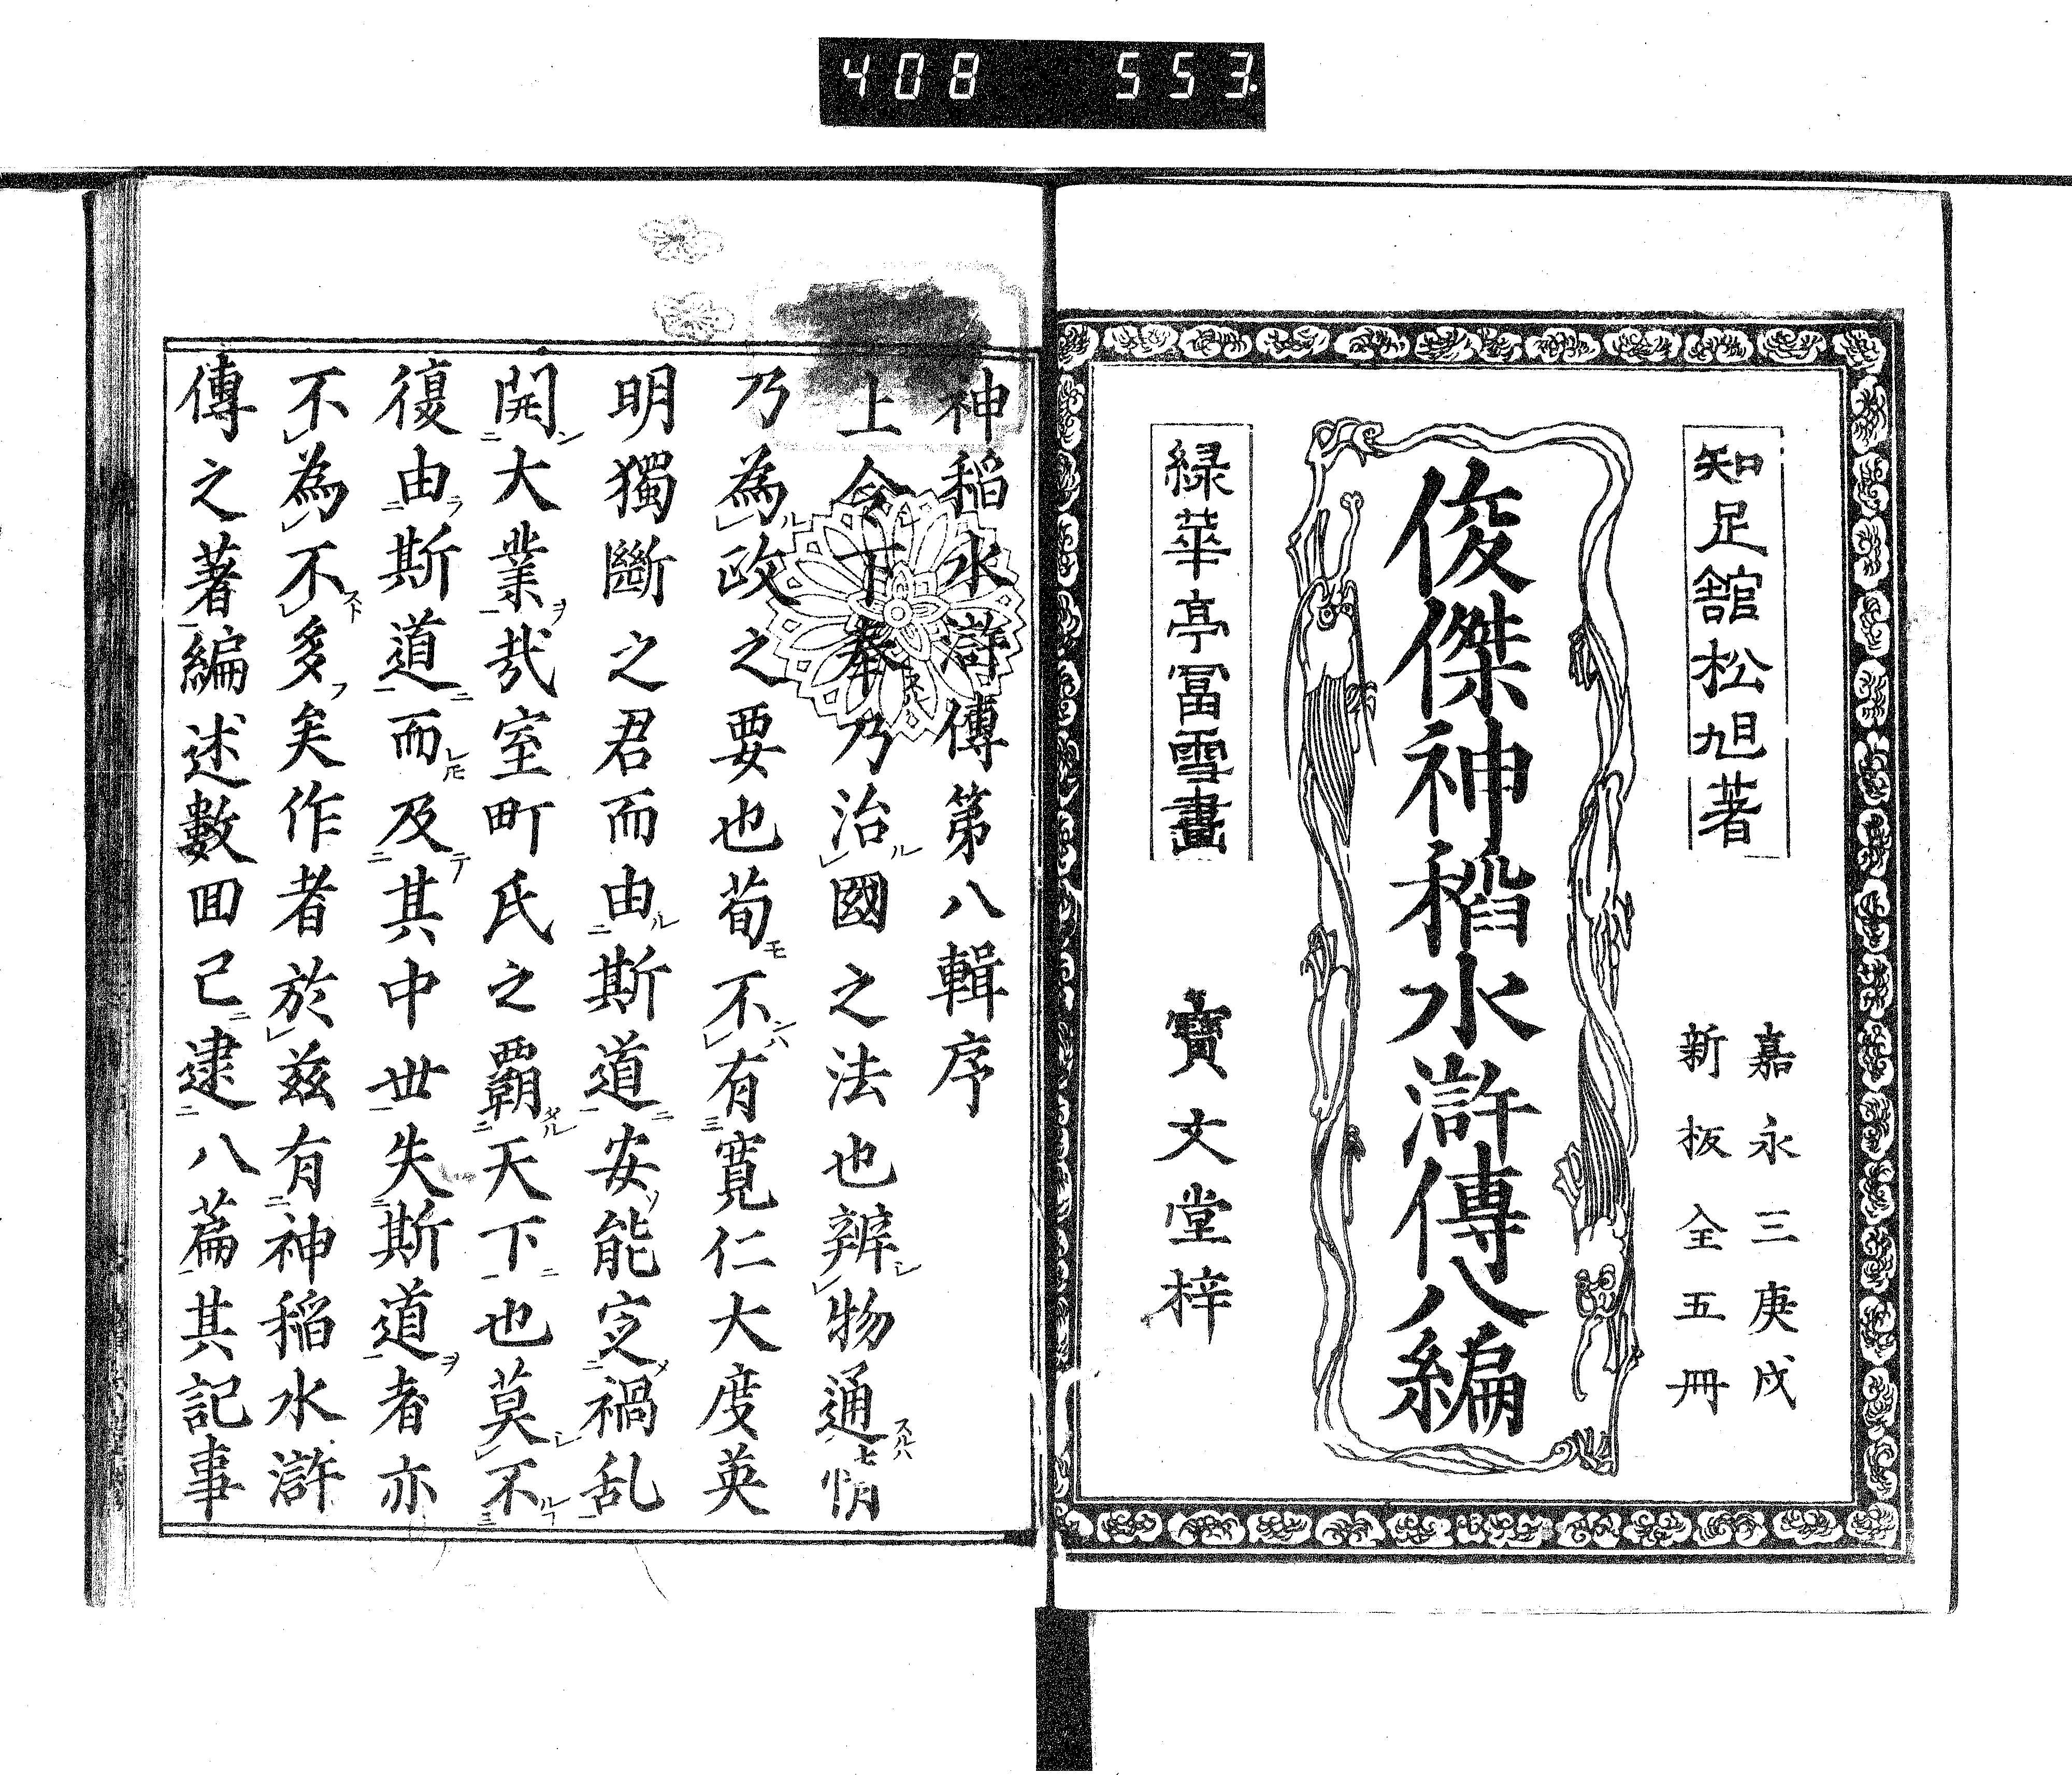 408 553
知足舘松旭著
嘉永三庚戌
新板全五冊
俊傑神稻水滸傳八編
緑華亭冨雪畫
寶文堂梓
神稻水滸傳第八輯序
上令下奉乃治國之法也辨物通情
乃為政之要也苟不有寛仁大度英
明獨斷之君而由斯道安能定禍乱
開大業哉室町氏之覇天下也莫不
復由斯道而及其中世失斯道者亦
不為不多矣作者於茲有神稲水滸
傳之著編述數回已逮八篇其記事